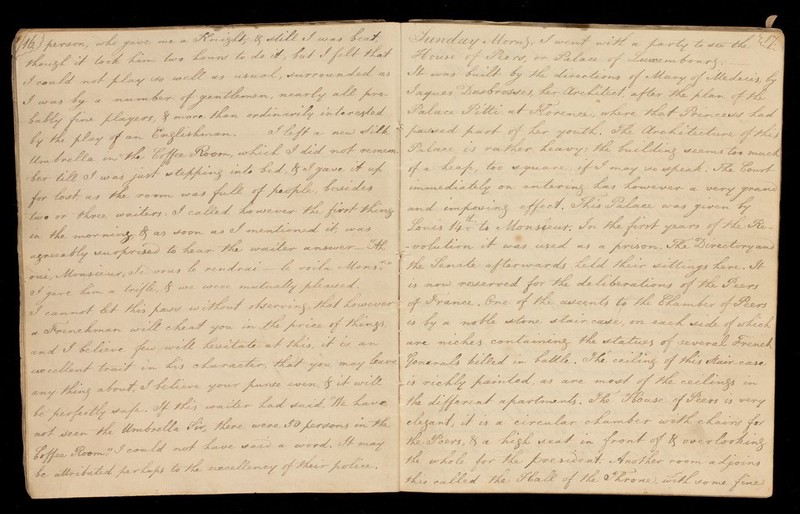 (46)
person, who gave me a Knight, & still I was beat,
though it took him two hours to do it, but I felt that
I could not play so well as usual, surrounded as
I was by a number of gentlemen, nearly all pro-
bably fine players, & more than ordinarily interested
by the play of an Englishman. I left a new silk
Umbrella in the Coffee Room, which I did not remem-
ber till I was just stepping into bed, & I gave it up
for lost, as the room was full of people, besides
two or three waiters. I called however the first thing
in the morning, & as soon as I mentioned it, was
agreeably surprised to hear the waiter answer — "Ah,
oui, Monsieur, Je vous le rendrai — le voila Monsr."
I gave him a trifle, & we were mutually pleased.
I cannot let this pass without observing, that however
a Frenchman will cheat you in the price of things,
and I believe few will hesitate at this, it is an
excellent trait in his character, that you may leave
any thing about, I believe your purse even, & it will
be perfectly safe. If this waiter had said, "We have
not seen the Umbrella Sir, there were 50 persons in the
Coffee Room" I could not have said a word. It may
be attributed perhaps to the excellency of their police.
47)
Sunday Morng. I went with a party to see the
House of Peers, or Palace of Luxembourg.
It was built by the directions of Mary of Medecis, by
Jaques Desbrosses, her Architect, after the plan of the
Palace Pitti at Florence, where that Princess had
passed part of her youth. The Architecture of this
Palace is rather heavy; the building seems too much
of a heap, too square, if I may so speak. The Court
immediately on entering has however a very grand
and imposing effect. This Palace was given by
Louis 14th to Monsieur. In the first years of the Re-
-volution it was used as a prison. The Directory and
the Senate afterwards held their sittings here. It
is now reserved for the deliberations of the Peers
of France. One of the ascents to the Chamber of Peers
is by a noble stone staircase, on each side of which
are niches containing the statues of several French
Generals killed in battle. The ceiling of this stair-case
is richly painted, as are most of the ceilings in
the different apartments. The House of Peers is very
elegant, it is a circular chamber with chairs for
the Peers, & a high seat in front of & overlooking
the whole for the president. Another room adjoins
this called the Hall of the Throne, with some fine